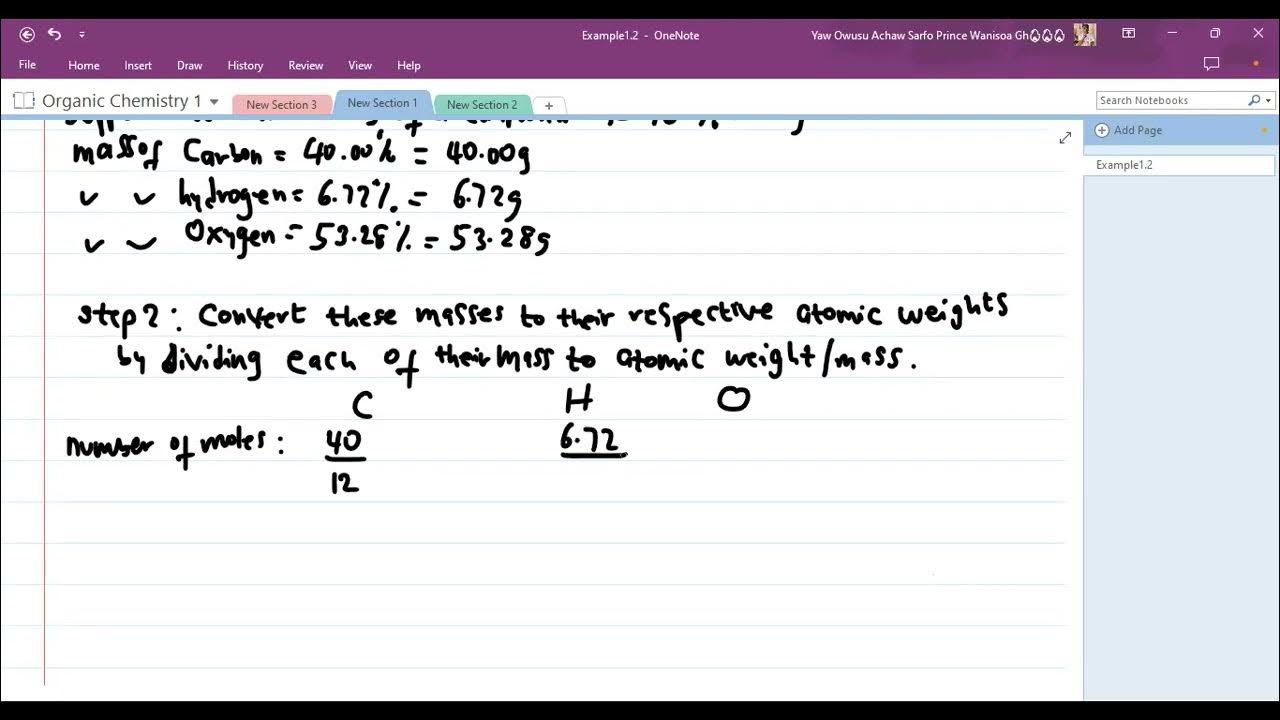 Example1.2 - OneNote
Yaw Owusu Achaw Sarfo Prince Wanisoa Gh
File Home Insert Draw History Review View Help
Organic Chemistry 1
New Section 3
New Section 1
New Section 2
Search Notebooks
Add Page
Example1.2
mass of Carbon = 40.00% = 40.00g
✓ ✓ hydrogen = 6.72% = 6.72g
✓ ✓ Oxygen = 53.28% = 53.28g
Step 2: Convert these masses to their respective atomic weights
by dividing each of their mass to atomic weight/mass.
C H O
number of moles: 40 6.72
12